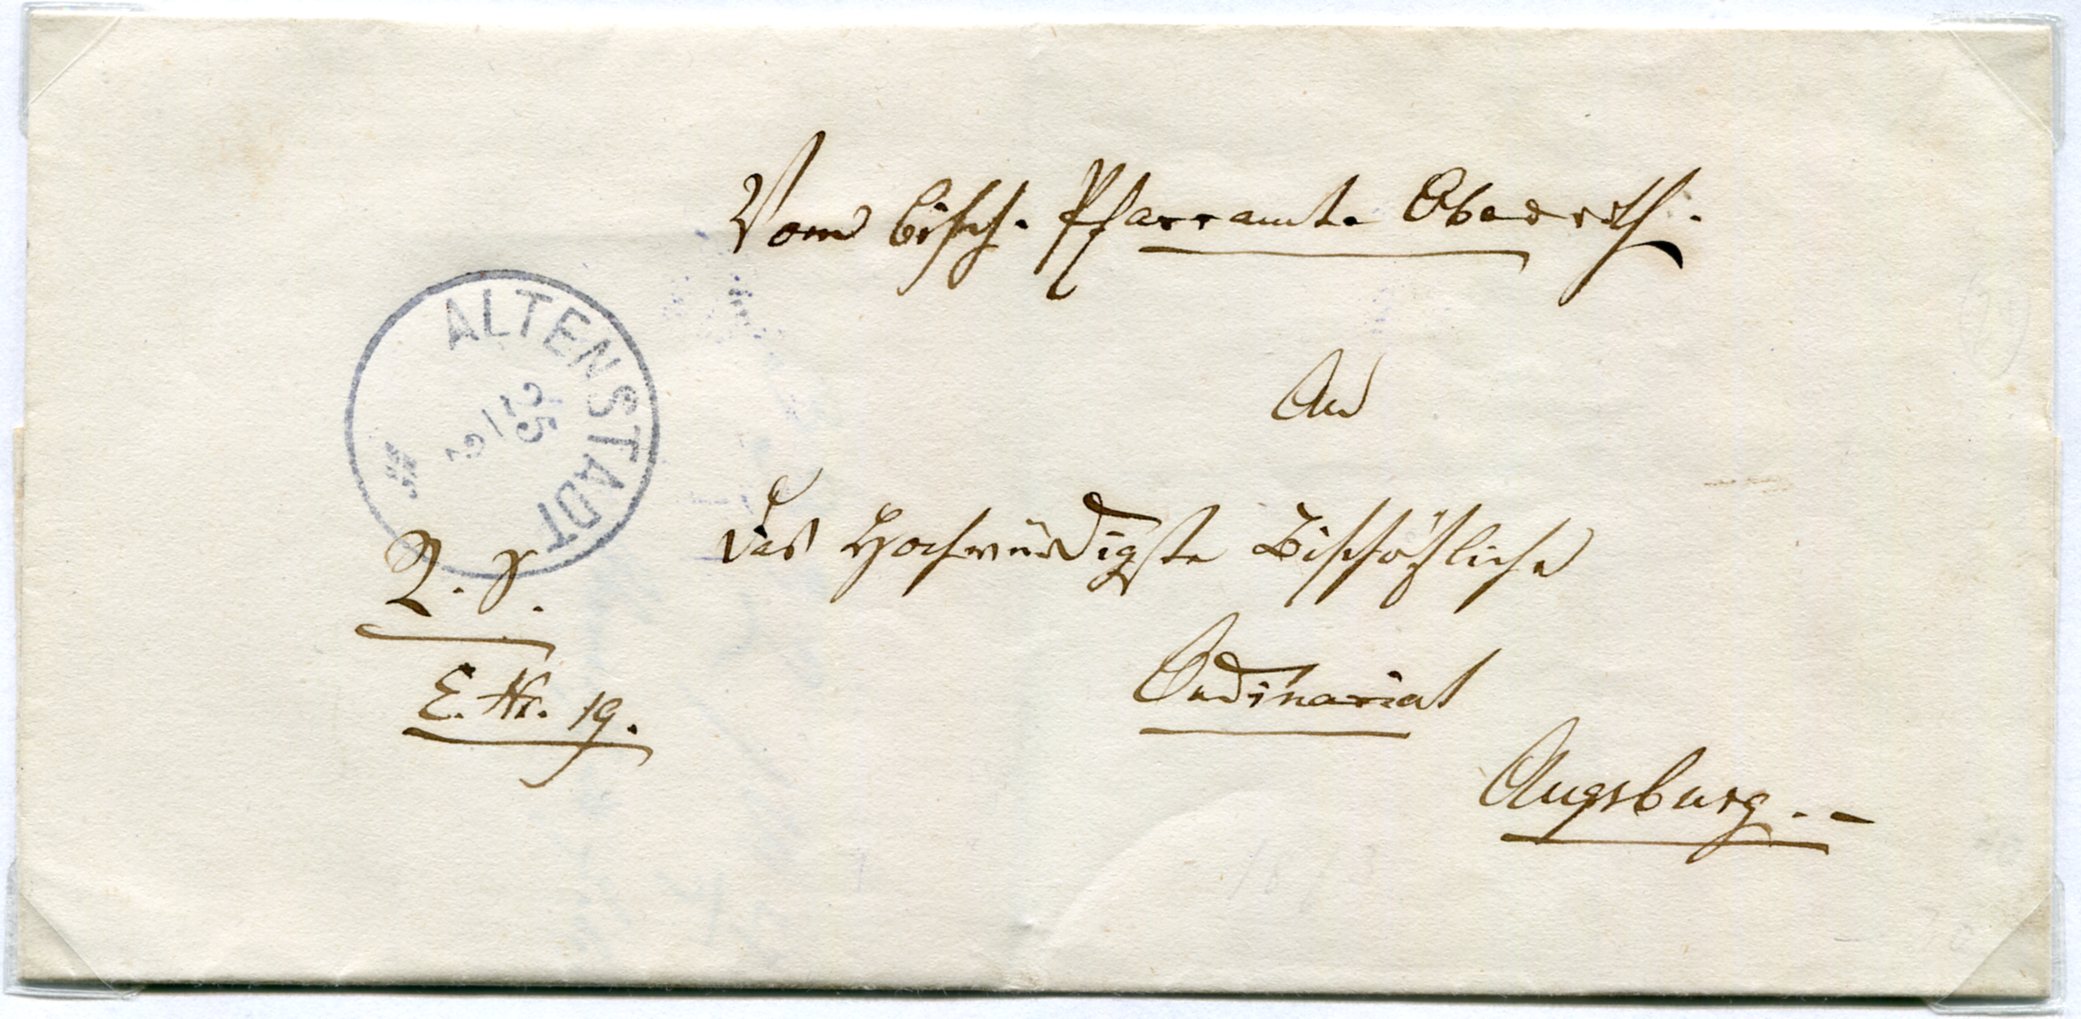 Vom bisch. Pfarramte
An
das Hochwürdigste Bischöfliche
Ordinariat
Augsburg. –
ALTENSTADT
25/2
R. S.
E. Nr. 19.